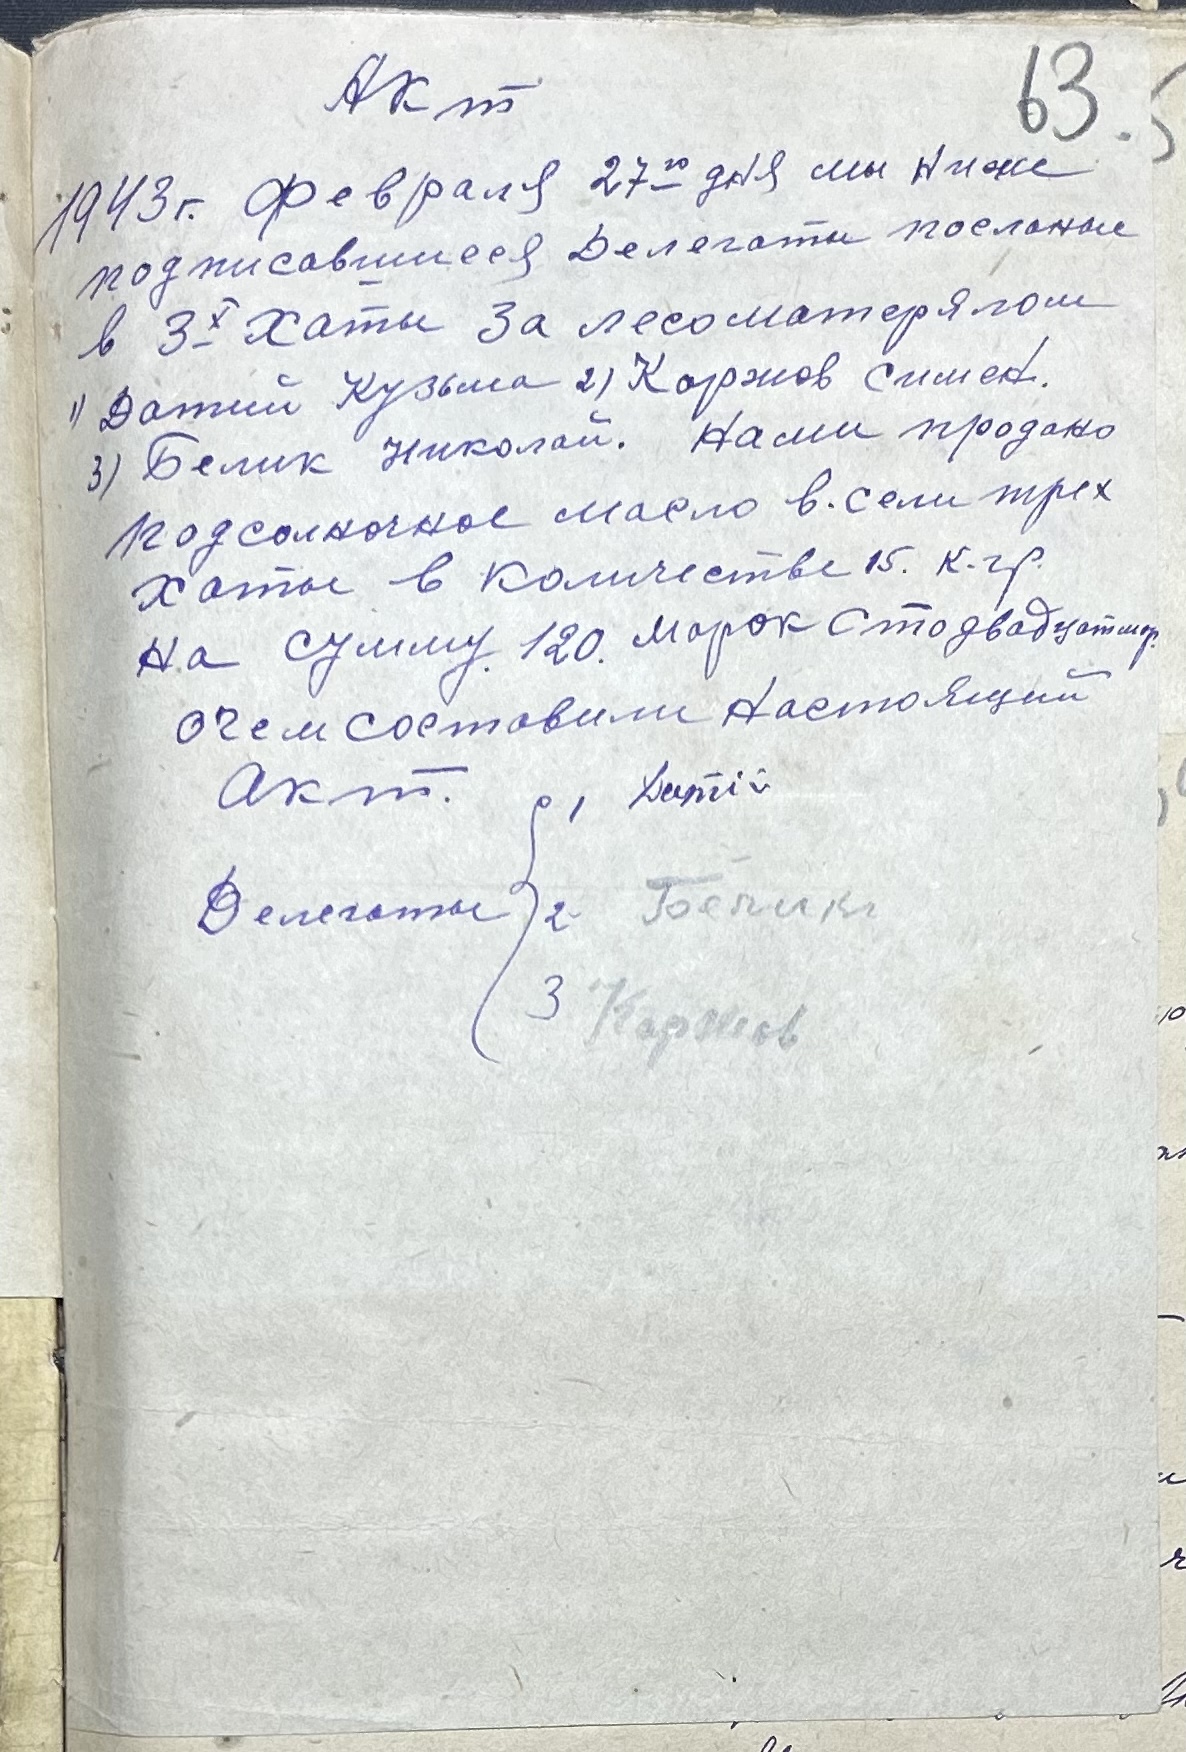 63.
Акт
1943г. Февраля 27го дня мы ниже
подписавшиеся Делегаты посланые
в 3х Хаты За лесоматерялом
1) Датий Кузьма 2) Коржов Симен.
3) Белик Николай. Нами продано
подсолночное масло в. сели трех
Хаты в количестве 15. к.гр.
на сумму. 120. марок Стодвадцатмар.
очем составили настоящий
Акт.
1, Датій
Делегаты 2
3 Коржов